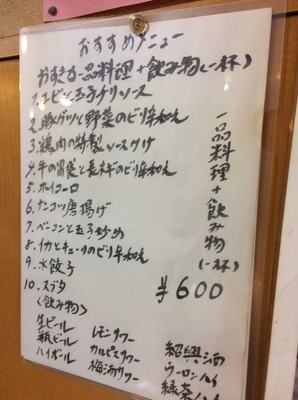 おすすめメニュー
おすきな一品料理+飲み物(一杯)
1.エビと玉子チリソース
2.豚ガツと野菜のピリ辛和え
3.鶏肉の特製ソースかけ
4.牛の胃袋と長ネギのピリ辛和え
5.ホイコーロ
6.ナンコツ唐揚げ
7.ベーコンと玉子炒め
8.イカとキューリのピリ辛和え
9.水餃子
10.スブタ
一品料理+飲み物(一杯)
¥600
(飲み物)
生ビール レモンサワー 紹興酒
瓶ビール カルピスサワー ウーロンハイ
ハイボール 梅酒サワー 緑茶ハイ